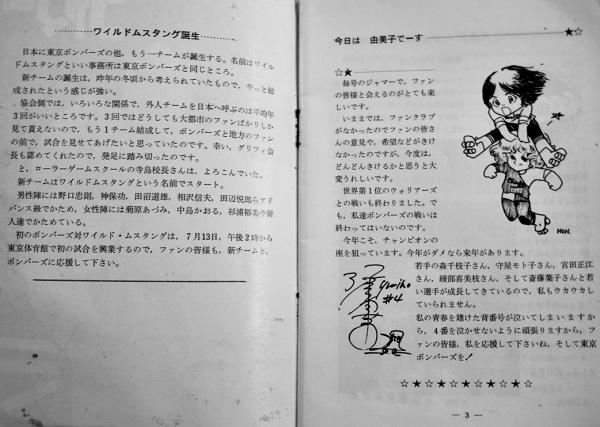 ワイルドムスタング誕生
日本に東京ボンバーズの他,もう一チームが誕生する。名前はワイル
ドムスタングといい事務所は東京ボンバーズと同じところ。
新チームの誕生は,昨年の冬頃から考えられていたもので,やっと結
成されたという感じが強い。
協会側では,いろいろな関係で,外人チームを日本へ呼ぶのは平均年
3回がいいところです。3回ではどうしても大都市のファンばかりしか
見て貰えないので,もう1チーム結成して,ボンバーズと地方のファン
の前で,試合を見せてあげたいと思っていたのです。幸い,グリフィ会
長も認めてくれたので,発足に踏み切ったのです。
と,ローラーゲームスクールの寺島校長さんは,よろこんでいた。
新チームはワイルドムスタングという名前でスタート。
男性陣には野口忠則,神保功,田沼道雄,相沢信夫,田辺悦郎らアド
バンス級でかため,女性陣には菊原あづみ,中島かおる,杉浦裕美や新
人達でかためている。
初のボンバーズ対ワイルド・ムスタングは,7月13日,午後2時から
東京体育館で初の試合を興業するので,ファンの皆様も,新チームと,
ボンバーズに応援して下さい。
今日は 由美子でーす
☆★
毎号のジャマーで,ファン
の皆様と会えるのがとても楽
しいです。
いままでは,ファンクラブ
がなかったのでファンの皆さ
んの意見や,希望などがきけ
なかったのですが,今度は,
どんどんきけるかと思うと大
変うれしいです。
世界第1位のウォリアーズ
との戦いも終わりました。で
も,私達ボンバーズの戦いは
終わってはいないのです。
今年こそ,チャンピオンの
座を狙っています。今年がダメなら来年があります。
若手の森千枝子さん,守屋モト子さん,宮田正江
さん,綾部喜美枝さん,そして斎藤葉子さんと若
い選手が成長してきているので,私もウカウカし
ていられません。
私の青春を賭けた背番号が泣いてしまいますか
ら,4番を泣かせないように頑張りますから,フ
ァンの皆様,私を応援して下さいね,そして東京
ボンバーズを!
NON.
yumiko
#4
☆★☆★☆★☆★☆★☆
— 3 —